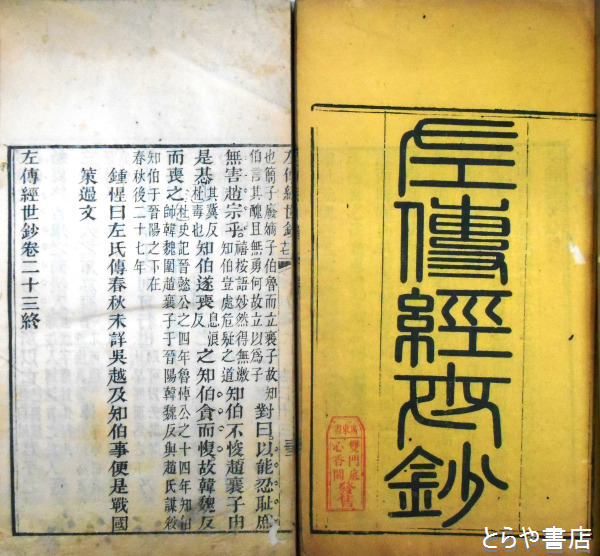 左傳經世鈔
廣東省
雙門底
心香閣
發售
左傳經世鈔
也簡子廢嫡子伯魯而立襄子故知
伯言其醜且無勇何故立以爲子
對曰以能忍恥庶
無害趙宗乎
禧按語妙然得無激
知伯豈處危疑之道
知伯不悛趙襄子由
是惎
其冀反
杜毒也
知伯遂喪
息浪反
之知伯貪而愎故韓魏反
而喪之
杜史記晉懿公之四年魯悼公之十四年知伯
帥韓魏圍趙襄子于晉陽韓魏反與趙氏謀殺
知伯于晉陽之下在
春秋後二十七年
鍾惺曰左氏傳春秋未詳吳越及知伯事便是戰國
策過文
左傳經世鈔卷二十三終
とらや書店